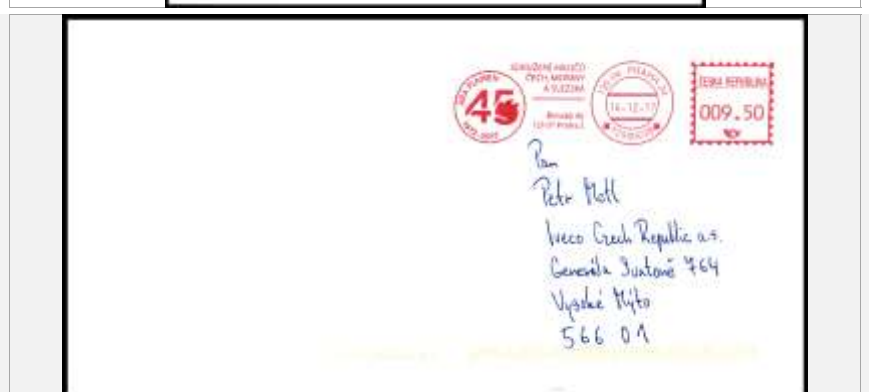 SDRUŽENÍ HASIČŮ
ČECH, MORAVY
A SLEZSKA
45
Praha 2
14-12-17
ČESKÁ REPUBLIKA
009.50
Pan
Petr Motl
Iveco Czech Republic a.s.
Generála Svatoně 764
Vysoké Mýto
566 01